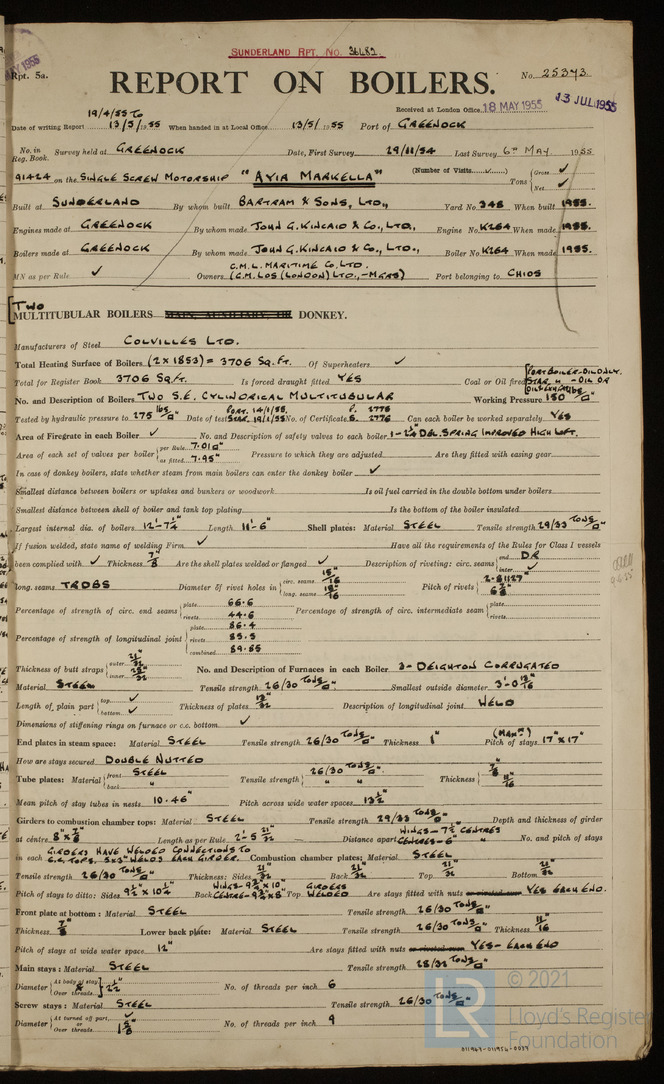 SUNDERLAND RPT. No. 36482.
Rpt. 5a.
REPORT ON BOILERS.
No. 25373.
Received at London Office 18 MAY 1955 13 JUL 1955
19/4/55 To
Date of writing Report 13/5/1955 When handed in at Local Office 13/5/1955 Port of GREENOCK
No. in Reg. Book. Survey held at GREENOCK Date, First Survey 29/11/54 Last Survey 6TH MAY. 1955
91424 on the SINGLE SCREW MOTORSHIP "AYIA MARKELLA" (Number of Visits ✓) Tons Gross ✓ Net ✓
Built at SUNDERLAND By whom built BARTRAM & SONS, LTD., Yard No. 348 When built 1955.
Engines made at GREENOCK By whom made JOHN G. KINCAID & CO., LTD., Engine No. K264 When made 1955.
Boilers made at GREENOCK By whom made JOHN G. KINCAID & CO., LTD., Boiler No. K264 When made 1955.
MN as per Rule ✓ Owners C.M.L. MARITIME CO. LTD. (C.M. LOS (LONDON) LTD., -MGRS) Port belonging to CHIOS
TWO
MULTITUBULAR BOILERS DONKEY.
Manufacturers of Steel COLVILLES LTD.
Total Heating Surface of Boilers (2 x 1853) = 3706 SQ. FT. Of Superheaters ✓
Total for Register Book 3706 SQ. FT. Is forced draught fitted YES Coal or Oil fired PORT BOILER-OIL ONLY. STAR. " - OIL OR
No. and Description of Boilers TWO S.E. CYLINDRICAL MULTITUBULAR Working Pressure 150 lbs/□"
Tested by hydraulic pressure to 275 lbs/□" Date of test PORT. 14/1/55. STAR. 19/1/55 No. of Certificate P. 2775 S. 2776 Can each boiler be worked separately YES
Area of Firegrate in each Boiler ✓ No. and Description of safety valves to each boiler 1-2¼" DBL. SPRING IMPROVED HIGH LIFT.
Area of each set of valves per boiler per Rule 7.01□" as fitted 7.95" Pressure to which they are adjusted Are they fitted with easing gear
In case of donkey boilers, state whether steam from main boilers can enter the donkey boiler ✓
Smallest distance between boilers or uptakes and bunkers or woodwork Is oil fuel carried in the double bottom under boilers
Smallest distance between shell of boiler and tank top plating Is the bottom of the boiler insulated
Largest internal dia. of boilers 12'-7¼" Length 11'-6" Shell plates: Material STEEL Tensile strength 29/33 TONS/□"
If fusion welded, state name of welding Firm ✓ Have all the requirements of the Rules for Class I vessels
been complied with ✓ Thickness 7/8" Are the shell plates welded or flanged ✓ Description of riveting: circ. seams end DR inter. ✓
long. seams TRDBS Diameter of rivet holes in circ. seams 15/16" long. seams Pitch of rivets
Percentage of strength of circ. end seams plate 66.6 rivets 44.6 Percentage of strength of circ. intermediate seam plate rivets
Percentage of strength of longitudinal joint plate 86.4 rivets 85.5 combined 89.85
Thickness of butt straps outer 21/32" inner No. and Description of Furnaces in each Boiler 3- DEIGHTON CORRUGATED
Material STEEL Tensile strength 26/30 TONS/□" Smallest outside diameter 3'-0 13/16"
Length of plain part top ✓ bottom ✓ Thickness of plates Description of longitudinal joint WELD
Dimensions of stiffening rings on furnace or c.c. bottom ✓
End plates in steam space: Material STEEL Tensile strength 26/30 TONS/□" Thickness 1" Pitch of stays (MAXM) 17" x 17"
How are stays secured DOUBLE NUTTED
Tube plates: Material front STEEL back " Tensile strength 26/30 TONS/□" " " Thickness 7/8" 11/16"
Mean pitch of stay tubes in nests 10.46" Pitch across wide water spaces 13½"
Girders to combustion chamber tops: Material STEEL Tensile strength 29/33 TONS/□" Depth and thickness of girder
at centre 8" x 7/8" Length as per Rule 2'-5 21/32" Distance apart WINGS-7½" CENTRES CENTRES-6" " No. and pitch of stays
in each GIRDERS HAVE WELDED CONNECTIONS TO C.C. TOPS. 5x3" WELDS EACH GIRDER. Combustion chamber plates: Material STEEL
Tensile strength 26/30 TONS/□" Thickness: Sides 21/32" Back 21/32" Top 21/32" Bottom 21/32"
Pitch of stays to ditto: Sides 9½" x 10¼" Back Top GIRDERS WELDED Are stays fitted with nuts YES EACH END.
Front plate at bottom: Material STEEL Tensile strength 26/30 TONS/□"
Thickness 7/8" Lower back plate: Material STEEL Tensile strength 26/30 TONS/□" Thickness 11/16"
Pitch of stays at wide water space 12" Are stays fitted with nuts YES- EACH END
Main stays: Material STEEL Tensile strength 28/32 TONS/□"
Diameter At body of stay Over threads 2½" No. of threads per inch 6
Screw stays: Material STEEL Tensile strength 26/30 TONS/□"
Diameter At turned off part, or Over threads ✓ 1⅝" No. of threads per inch 9
© 2021
LR
Lloyd's Register
Foundation
011947-011956-0037